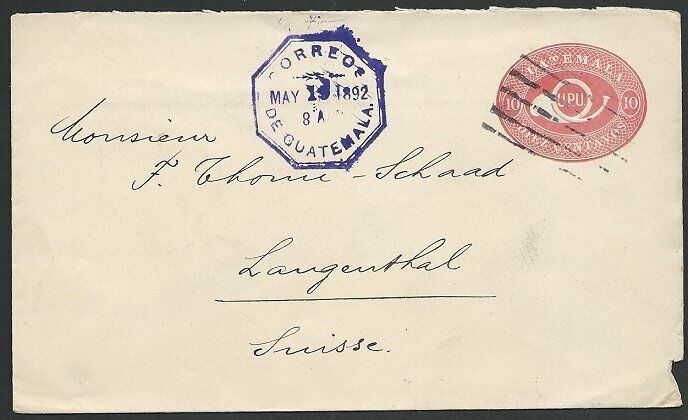 CORREOS
MAY 19 1892
8 A
DE GUATEMALA.
GUATEMALA
10 UPU 10
CENTAVOS
Monsieur
F. Thomi-Schaad
Langenthal
Suisse.